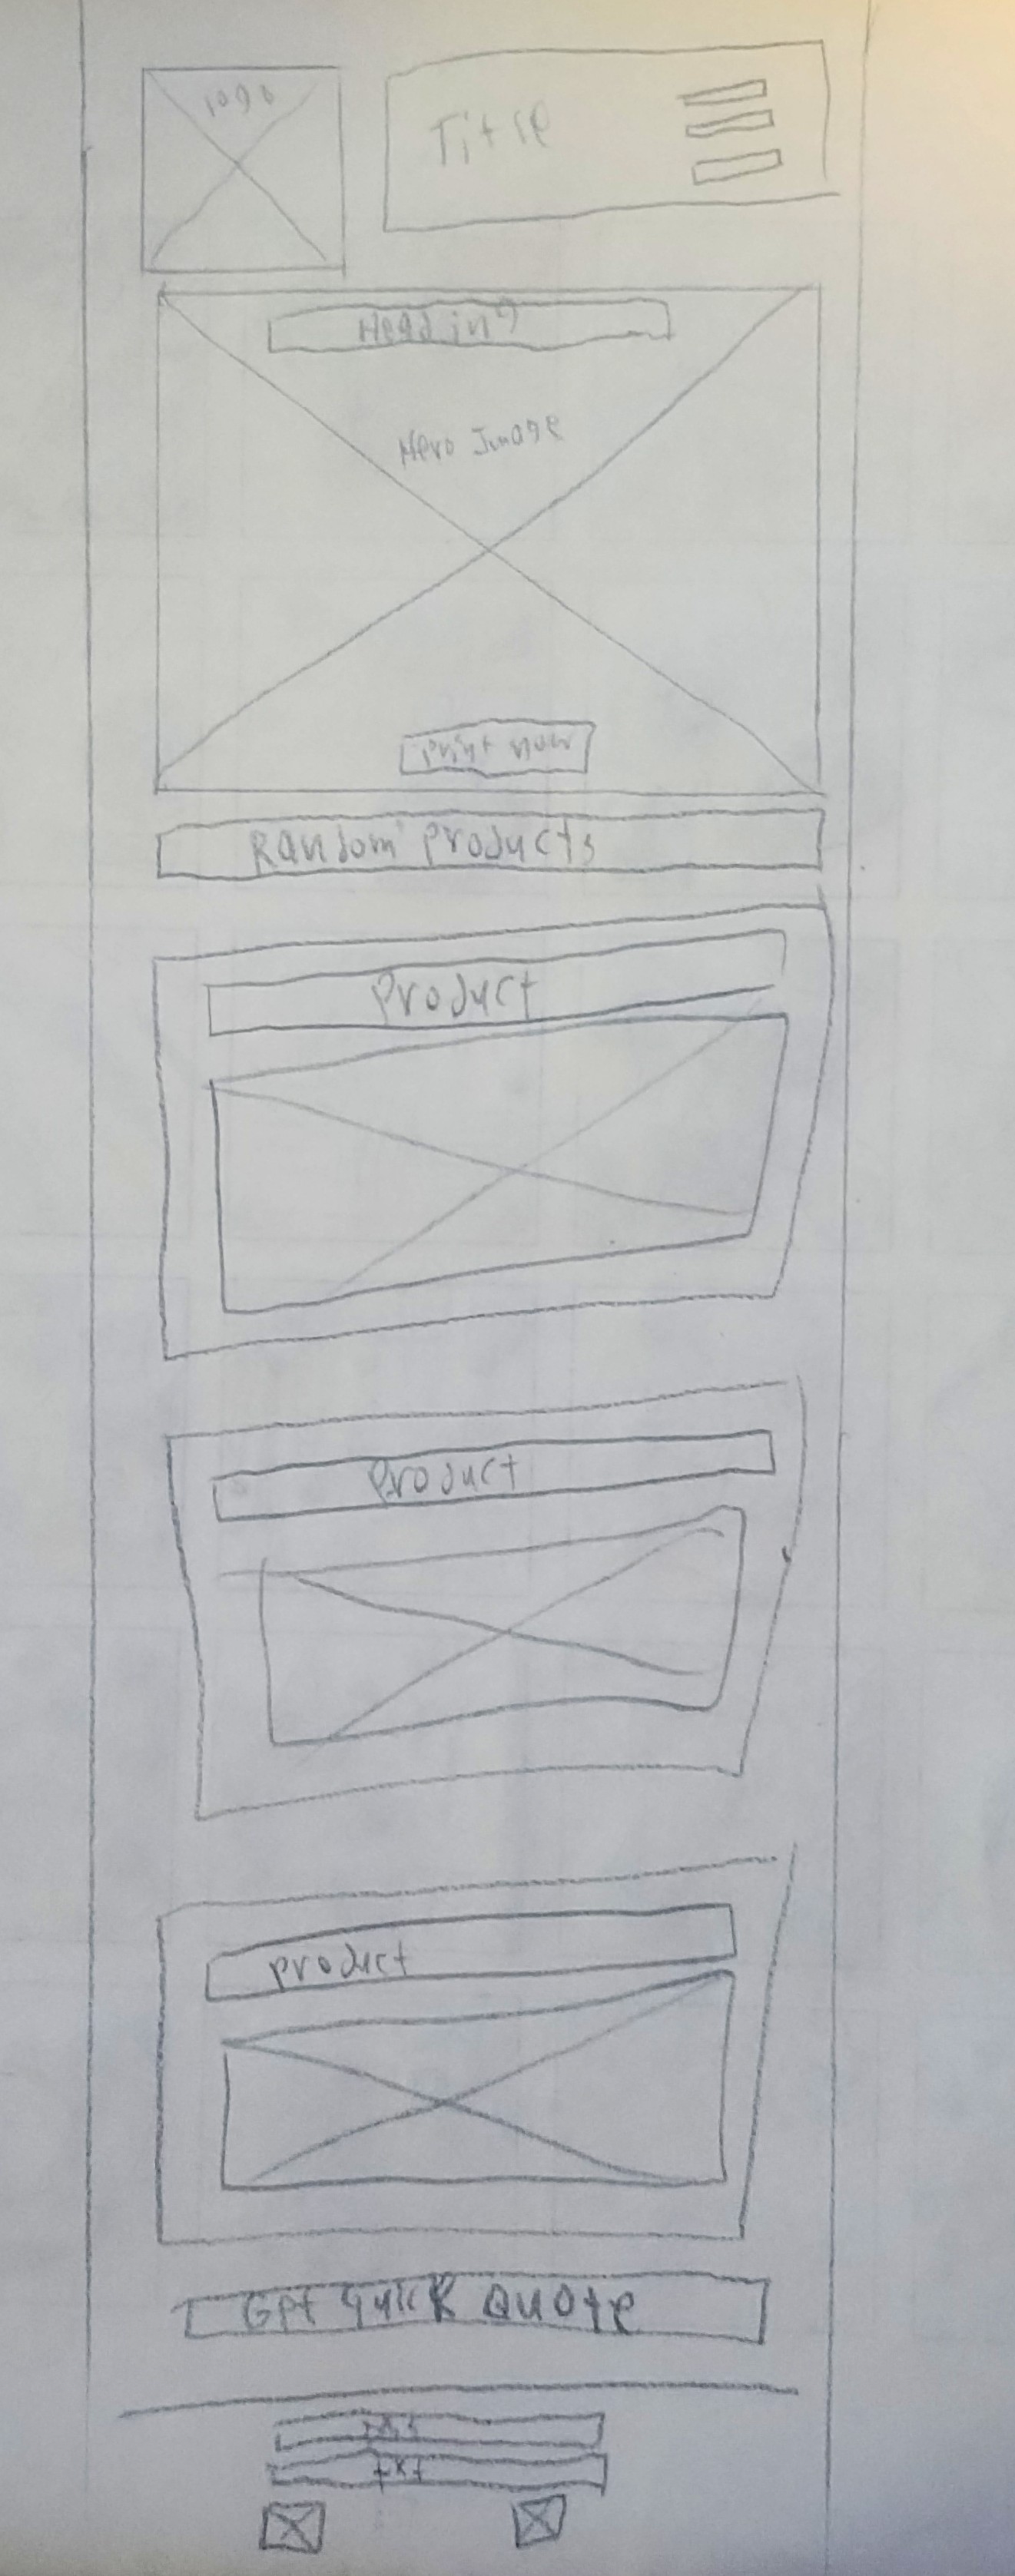 logo
Title
Heading
Hero Image
Print now
Random Products
Product
Product
product
Get Quick Quote
txt
txt